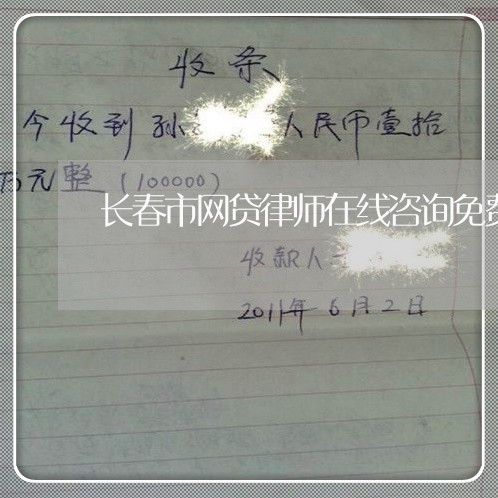 收条
今收到孙 人民币壹拾
万元整（100000）
长春市网贷律师在线咨询免费
收款人
2011年6月2日